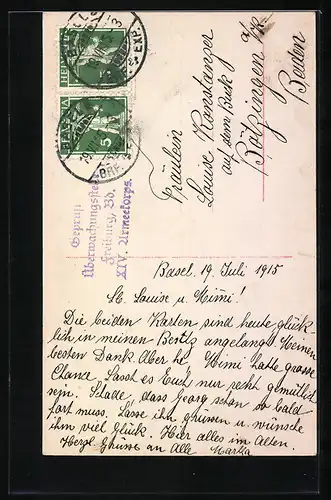 HELVETIA
5
HELVETIA
Fräulein
Louise Konstanzer
auf dem Buck
Bötzingen a/K
Baden
Geprüft
Überwachungsstelle
Freiburg, Bd.
XIV. Armeekorps.
Basel, 19. Juli 1915
Lb. Louise u. Mimi!
Die beiden Karten sind heute glück
lich in meinen Besitz angelangt. Meinen
besten Dank. Aber he Mimi hatte grosse
Chance. Lasst es Euch nur recht gemütlich
sein. Schade, dass Georg schon so bald
fort muss. Lasse ihn grüssen u. wünsche
ihm viel Glück. Hier alles im Alten.
Herzl. Grüsse an Alle